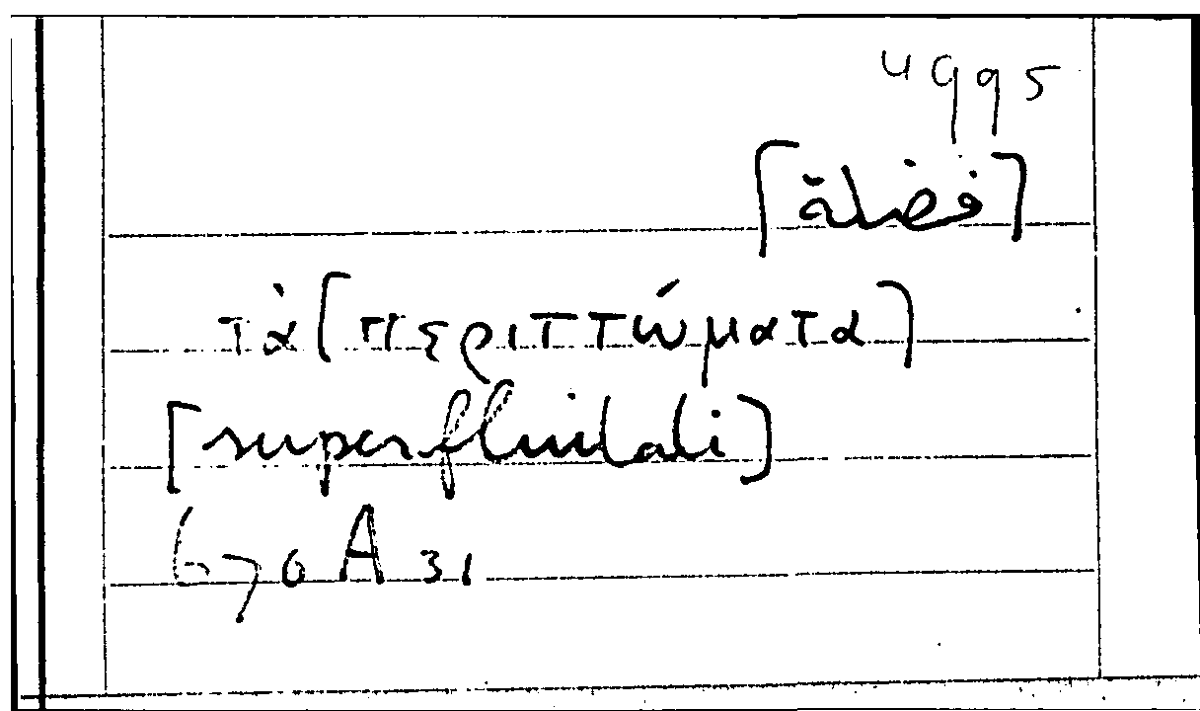 4995
[فضلة]
τὰ [περιττώματα]
[superfluitati]
670 A 31